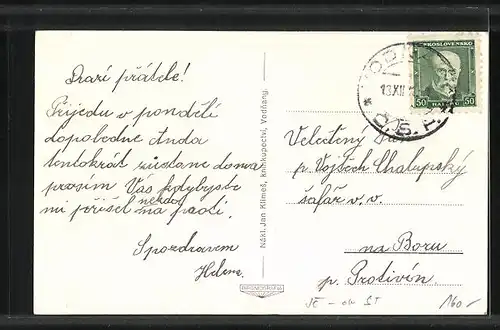 Drazí přátelé!
Přijedu v pondělí
dopoledne Anda
tentokrát zůstane doma
prosím Vás kdybyste
někdo
mi přišel na proti.
S pozdravem
Helena.
Nákl. Jan Klimeš, knihkupectví, Vodňany.
ČESKOSLOVENSKO
50 HALÉŘŮ 50
13.XII
Č.S.P.
Velectěný
p. Vojtěch Chalupský
šafář v. v.
na Boru
p. Protivín.
160.-